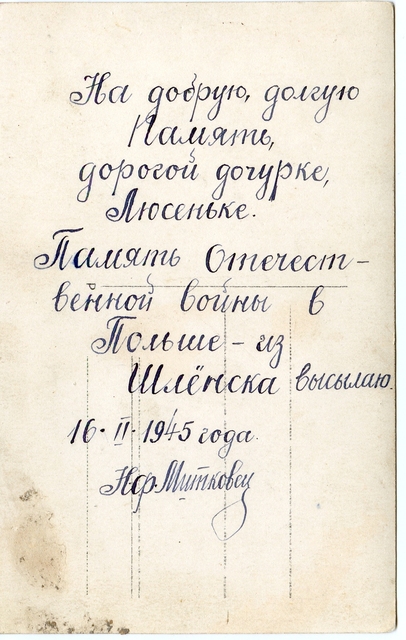 На добрую, долгую
Память,
дорогой дочурке,
Люсеньке.
Память Отечест-
венной войны в
Польше - из
Шлёнска высылаю.
16. II. 1945 года.
Митковец